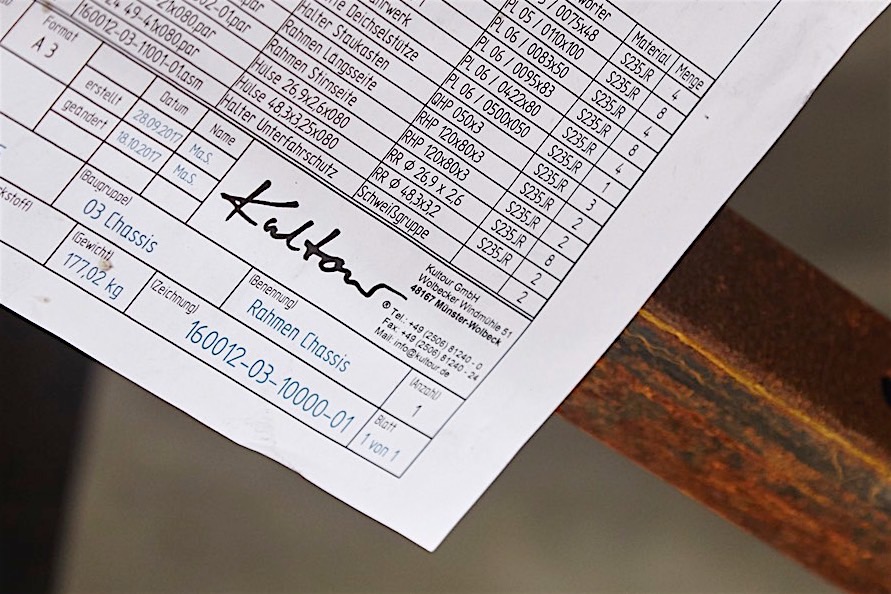 wörter Material Menge
PL 05 / 0075x48 S235JR 4
fahrwerk PL 05 / 0110x100 S235JR 8
Deichselstütze PL 06 / 0083x50 S235JR 4
Halter Staukasten PL 06 / 0095x83 S235JR 8
Rahmen Längsseite PL 06 / 0422x80 S235JR 4
Rahmen Stirnseite PL 06 / 0500x050 S235JR 1
Hülse 26.9x26x080 RHP 050x3 S235JR 3
Hülse 48.3x3.25x080 RHP 120x80x3 S235JR 2
Halter Unterfahrschutz RHP 120x80x3 S235JR 2
RR Φ 26.9 x 2.6 S235JR 8
RR Φ 48.3x3.2 S235JR 2
Schweißgruppe 2
21x080.par
02-01.par
49-41x080.par
21x080.par
160012-03-11001-01.asm
Format
A 3
Datum Name
erstellt 28.09.2017 Ma.S.
geändert 18.10.2017 Ma.S.
Kultour ®
Kultour GmbH
Wolbecker Windmühle 51
48167 Münster-Wolbeck
Tel.: +49 (2506) 81240 - 0
Fax: +49 (2506) 81240 - 24
Mail: info@kultour.de
(Baugruppe)
03 Chassis
(Gewicht)
177,02 kg
(Benennung)
Rahmen Chassis
(Zeichnung)
160012-03-10000-01
(Anzahl)
1
Blatt
1 von 1